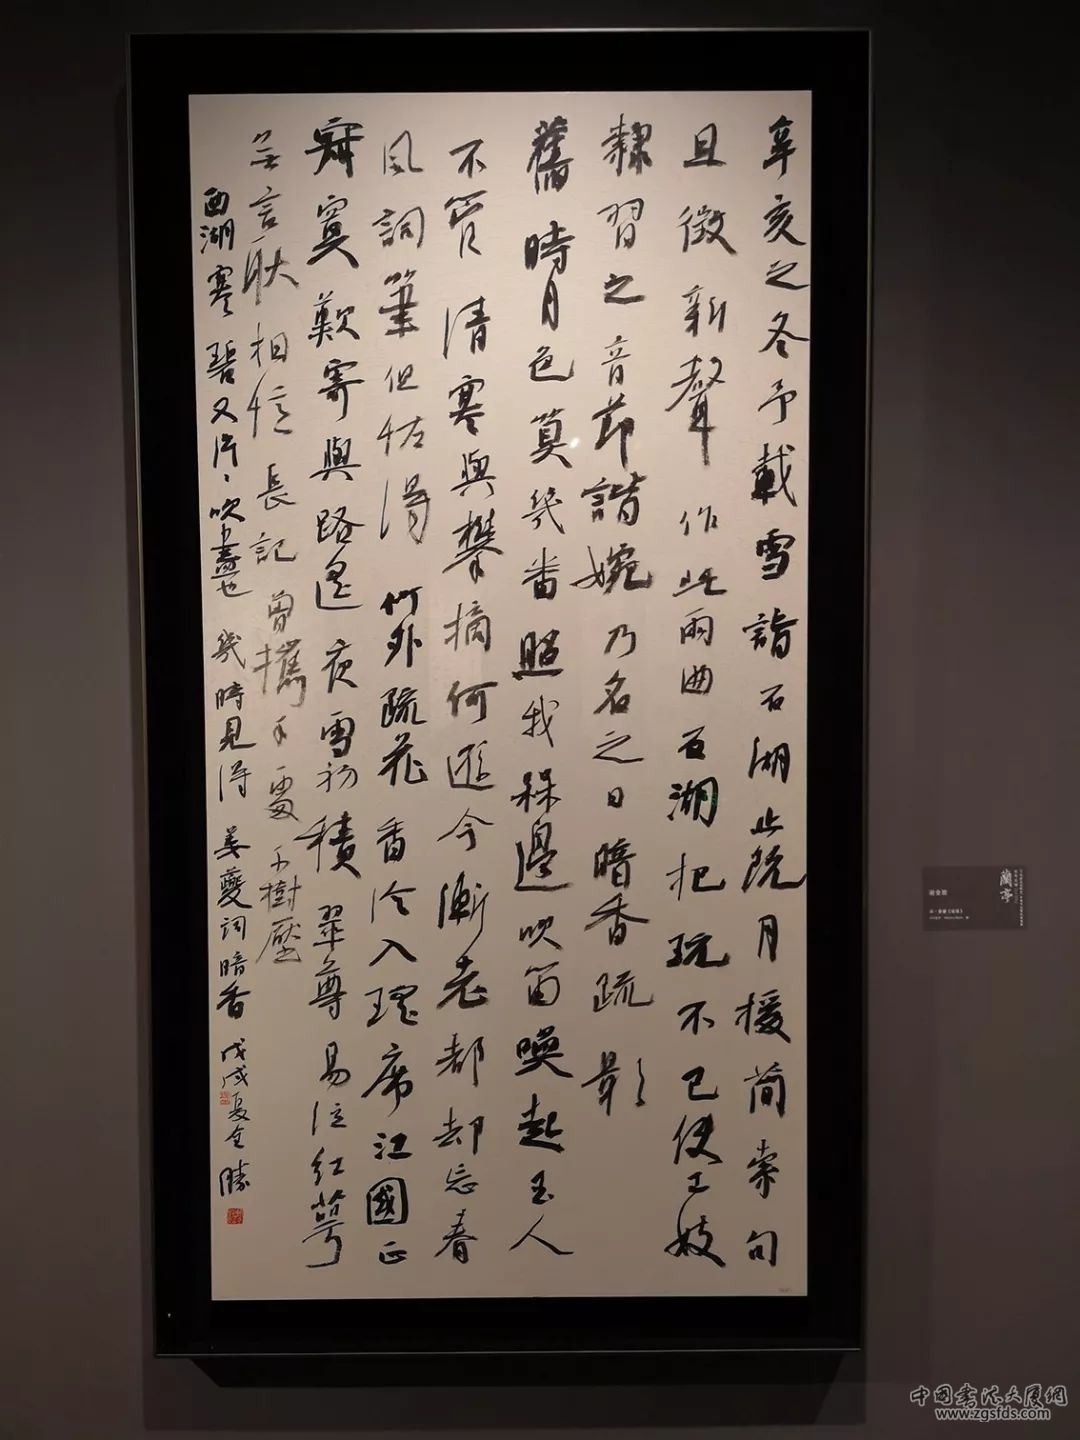 辛亥之冬予載雪詣石湖止既月援简索句
且徵新聲作此兩曲石湖把玩不已使工妓
隸習之音节諧婉乃名之曰暗香疏影
舊時月色算幾番照我梅邊吹笛喚起玉人
不管清寒與攀摘何遜今漸老都却忘春
风詞筆但怪得竹外疏花香冷入瑤席江國正
寂寞歎寄與路遙夜雪初積翠尊易泣红萼
無言耿相憶長記曾攜手處千樹壓
西湖寒碧又片、吹盡也幾時見得姜夔词暗香戊戌夏全勝
蘭亭
中國書法大厦網
www.zgsfds.com